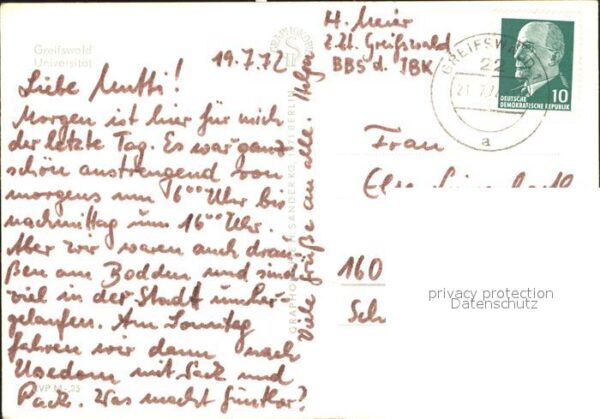 Greifswald
Universität
19.7.72
Liebe Mutti!
Morgen ist hier für mich
der letzte Tag. Es war ganz
schön anstrengend von
morgens um 6⁰⁰ Uhr bis
nachmittag um 16⁰⁰ Uhr.
Aber wir waren auch drau-
ßen am Bodden und sind
viel in der Stadt umher-
gelaufen. Am Sonntag
fahren wir dann nach
Usedom mit Sack und
Pack. Was macht Günther?
Viele Grüße an alle. Holger
H. Meier
z.Zt. Greifswald
BBS d. IBK
GREIFSWALD 1
22
21.7.72
a
10
DEUTSCHE
DEMOKRATISCHE REPUBLIK
Frau
160
Sch
privacy protection
Datenschutz